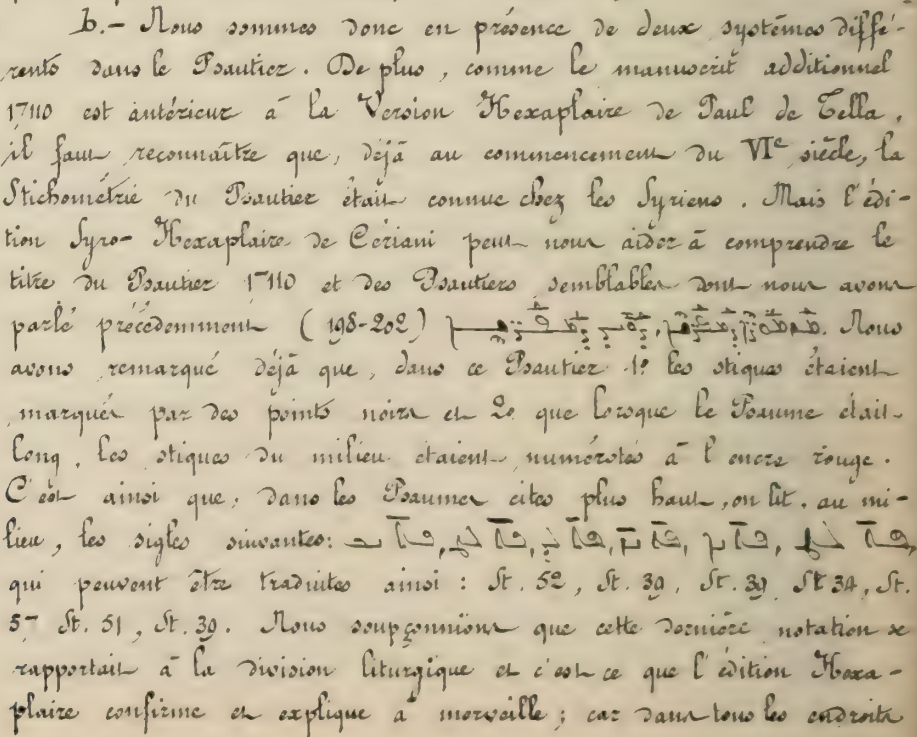 b.- Nous sommes donc en présence de deux systèmes diffé-
rents dans le Psautier. De plus, comme le manuscrit additionnel
17110 est antérieur à la Version Hexaplaire de Paul de Tella,
il faut reconnaître que, déjà au commencement du VIe siècle, la
Stichométrie du Psautier était connue chez les Syriens. Mais l'édi-
tion Syro-Hexaplaire de Cériani peut nous aider à comprendre le
titre du Psautier 17110 et des Psautiers semblables dont nous avons
parlé précédemment (198-202). Nous
avons remarqué déjà que, dans ce Psautier 1º les stiques étaient
marqués par des points noirs et 2º que lorsque le Psaume était
long, les stiques du milieu étaient numérotés à l'encre rouge.
C'est ainsi que, dans les Psaumes cités plus haut, on lit, au mi-
lieu, les sigles suivantes:
qui peuvent être traduites ainsi : St. 52, St. 39, St. 39, St 34, St.
57 St. 51, St. 39. Nous soupçonnions que cette dernière notation se
rapportait à la division liturgique et c'est ce que l'édition Hexa-
plaire confirme et explique à merveille ; car dans tous les endroits